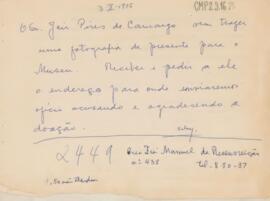 3 II 1955
CMP2.3.16
O Sr. José Pires de Camargo vem trazer
uma fotografia de presente para o
Museu. Receber e pedir a ele
o endereço para onde enviaremos
ofício acusando e agradecendo a
doação.
2449
Rua Frei Manuel da Ressurreição
nº 438
Tel. 8-30-37